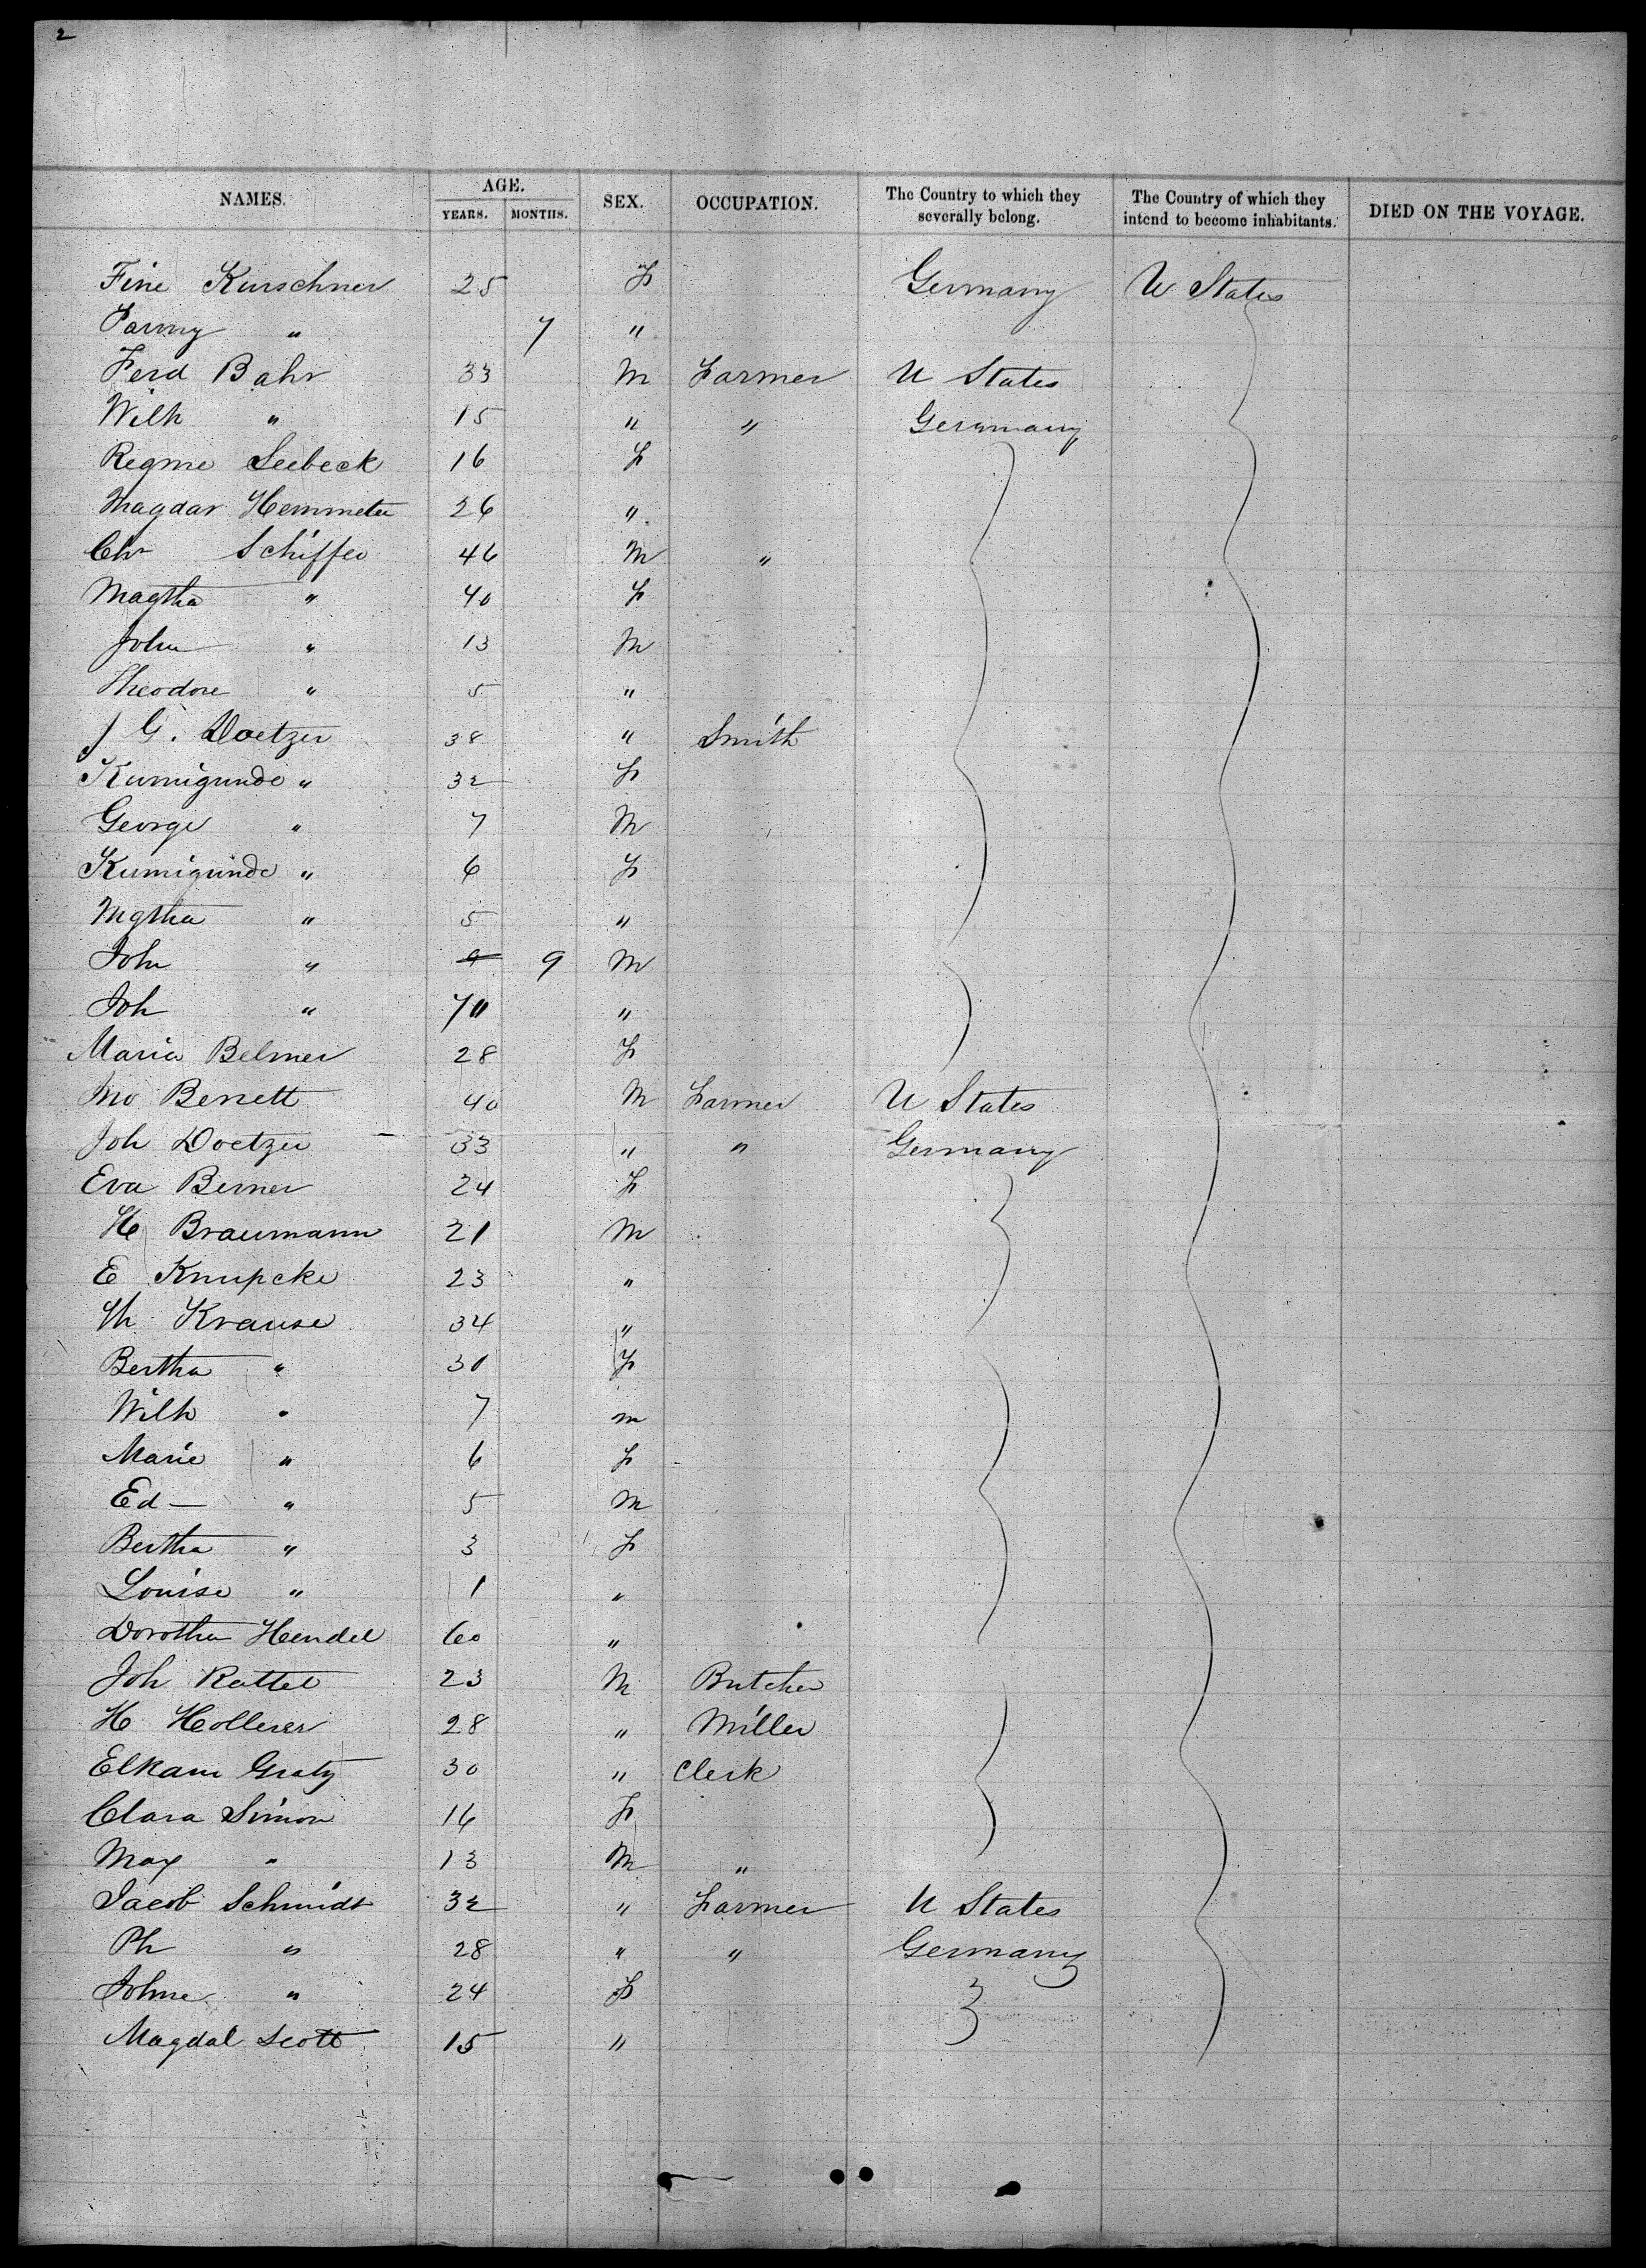 2
NAMES. AGE. YEARS. MONTHS. SEX. OCCUPATION. The Country to which they severally belong. The Country of which they intend to become inhabitants. DIED ON THE VOYAGE.
Fine Kurschner 25 F Germany U States
Fanny " 7 "
Ferd Bahr 33 M Farmer U States
Wilh " 15 " " Germany
Regine Seebeck 16 F
Magdar Hemmeter 26 "
Chr Schiffer 46 M "
Magtha " 40 F
John " 13 M
Theodore " 5 "
J G. Doetzer 38 " Smith
Kunnigunde " 32 F
George " 7 M
Kunnigunde " 6 F
Mgtha " 5 "
Joh " 9 9 M
Joh " 70 "
Maria Belmer 28 F
Jno Benett 40 M Farmer U States
Joh Doetzer 33 " " Germany
Eva Berner 24 F
H Braumann 21 M
E Knupcke 23 "
Th Krause 34 "
Bertha " 30 F
Wilh " 7 M
Marie " 6 F
Ed — " 5 M
Bertha " 3 F
Louise " 1 "
Dorothea Hendel 60 "
Joh Rattel 23 M Butcher
H Hollerer 28 " Miller
Elkam Gratz 30 " Clerk
Clara Simon 16 F
Max " 13 M "
Jacob Schmidt 32 " Farmer U States
Ph " 28 " " Germany
Johne " 24 F
Magdal Scott 15 "